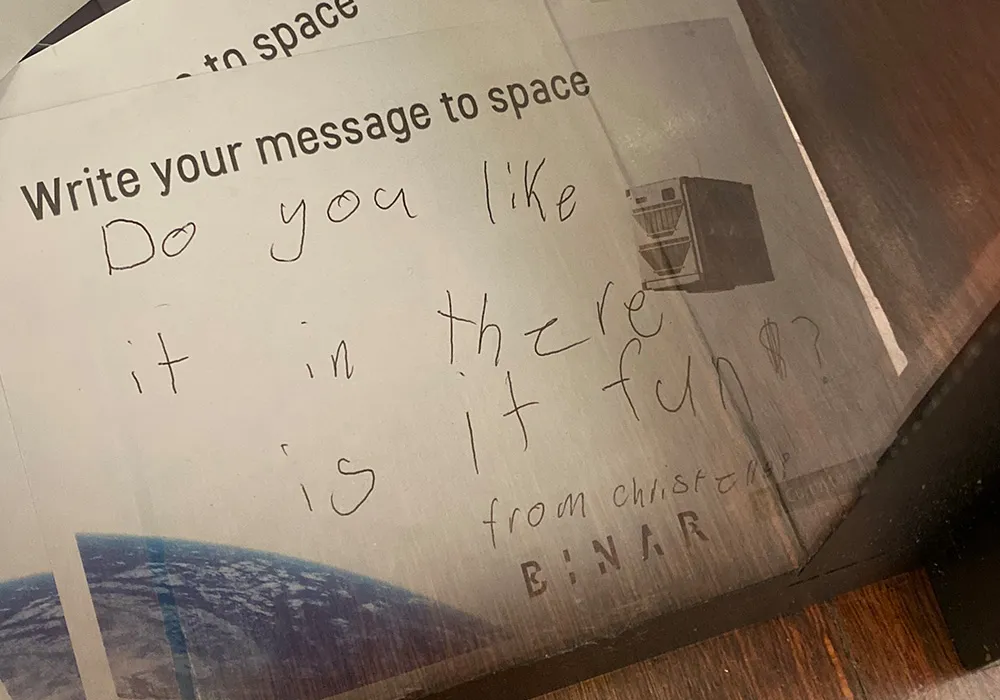 to space
Write your message to space
Do you like
it in there
is it fun $?
from christelle
BINAR